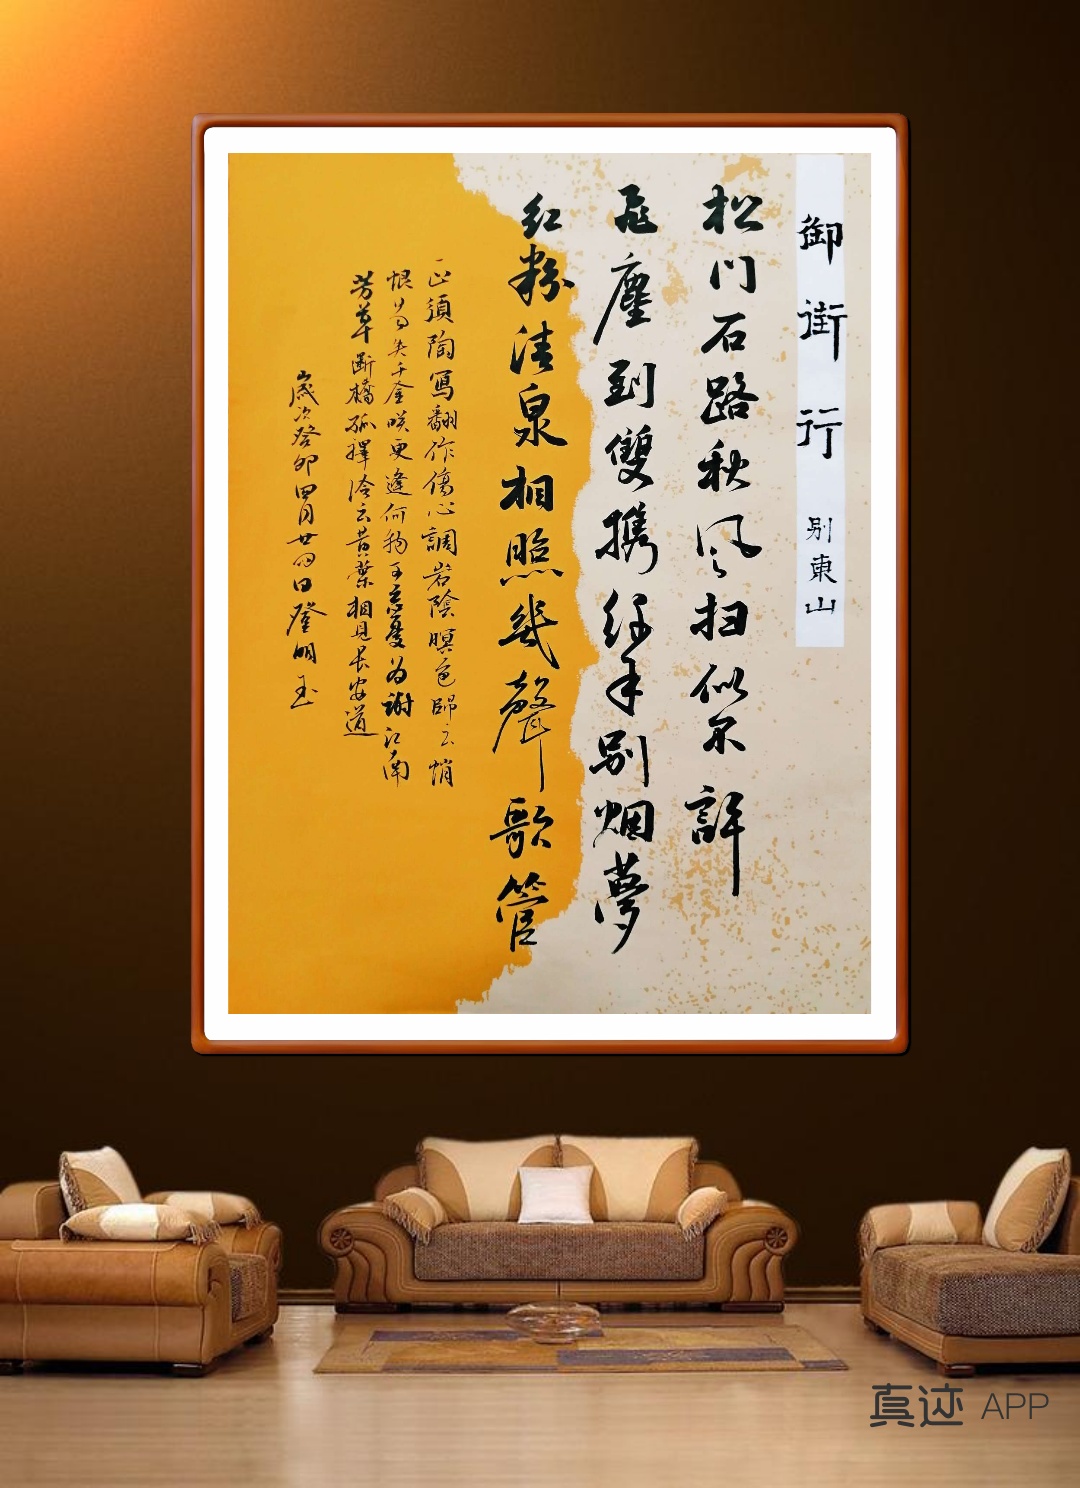 御街行 别東山
松门石路秋风扫似不許
飛塵到雙携纤手别烟夢
红粉清泉相照幾聲歌管
正須陶寫翻作傷心調岩陰暝色歸云悄
恨易失千金咲更逢何物可忘憂为謝江南
芳草断橋孤擇冷云黄葉相見长安道
歲次癸卯四月廿四日
真迹 APP